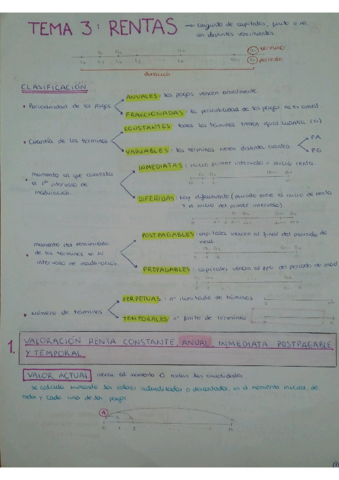 TEMA 3: RENTAS → conjunto de capitales,
en distintos vencimientos
Duración
CLASIFICACIÓN
ANUALES: los pagos vencen anualmente
• Periodicidad de los pagos
FRACCIONADAS: la periodicidad de los pagos no es anual
CONSTANTES: todos los términos tienen igual cuantía
• Cuantía de los términos
VARIABLES: los términos tienen distinta cuantía
PA
PG
INMEDIATAS: inicio primer intervalo = inicio renta
• momento en que comienza
el 1er intervalo de
maduración
DIFERIDAS: hay diferimiento (periodo entre el inicio de renta
y el inicio del primer intervalo)
POSTPAGABLES: capitales vencen al final del periodo de
mad.
• momento del vencimiento
de los términos en el
intervalo de maduración
PREPAGABLES: capitales vencen al del periodo de mad
PERPETUAS: nº ilimitado de términos
• Número de términos
TEMPORALES: nº finito de términos
1. VALORACIÓN RENTA CONSTANTE, ANUAL, INMEDIATA, POSTPAGABLE
Y TEMPORAL
VALOR ACTUAL: valora al momento 0 todas las cantidades
se calcula sumando los valores actualizados o descontados, en el momento inicial, de
todos y cada uno de los pagos